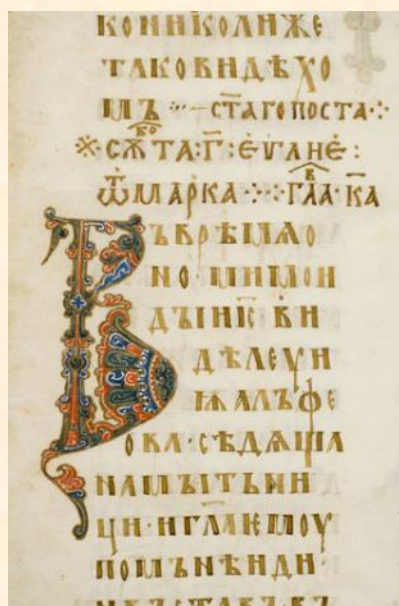 КОНИКОЛИЖЕ
ТАКОВИДѢХО
МЪ ·:·— СТ҃АГОПОСТА·:·
※СѪБОТА·Г҃·ЕѴАНЕ:
Ѿ МАРКА·:·:·ГЛАВ·К҃А
ВЪВРѢМѦО
НО·МИМОИ
ДЫИI҃СВИ
ДѢЛЕѴИ
ИѬАЛЪФЕ
ОВА·СѢДѦЩА
НАМЪIТЬНИ
ЦИ·ИГЛ҃АЕМОУ
ПОМЪНѢИДИ·